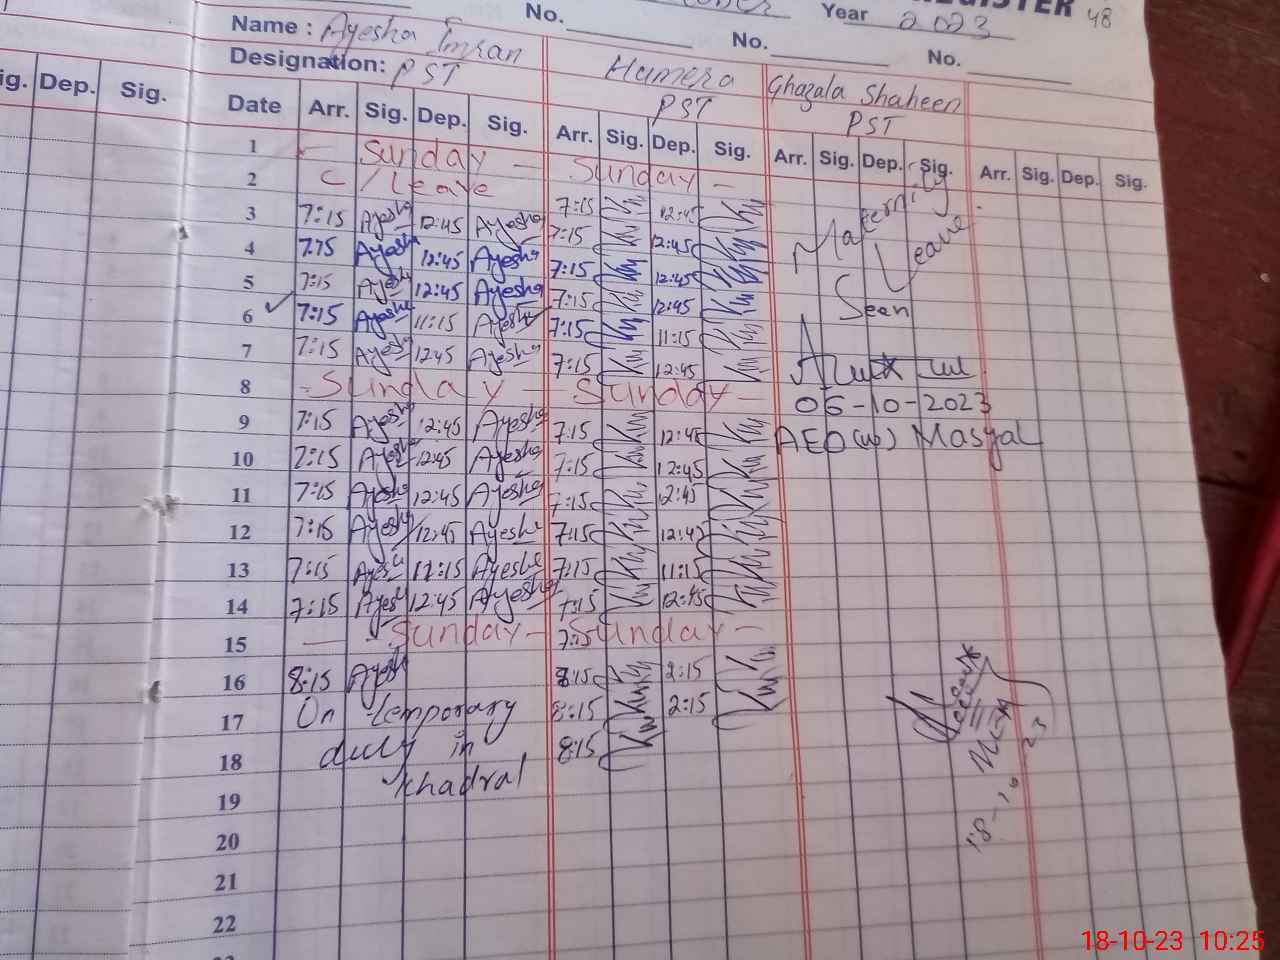 REGISTER 48
No. Year 2023
Name : Ayesha Imran No. No.
Designation: PST Humera PST Ghazala Shaheen PST
ig. Dep. Sig. Date Arr. Sig. Dep. Sig. Arr. Sig. Dep. Sig. Arr. Sig. Dep. Sig. Arr. Sig. Dep. Sig.
1 - Sunday - Sunday -
2 C/Leave 7:15 12:45
3 7:15 Ayesha 12:45 Ayesha 7:15 12:45
4 7:15 Ayesha 12:45 Ayesha 7:15 12:45
5 7:15 Ayesha 12:45 Ayesha 7:15 12:45
6 7:15 Ayesha 11:15 Ayesha 7:15 11:15
7 7:15 Ayesha 12:45 Ayesha 7:15 12:45
8 - Sunday - Sunday -
9 7:15 Ayesha 12:45 Ayesha 7:15 12:45
10 7:15 Ayesha 12:45 Ayesha 7:15 12:45
11 7:15 Ayesha 12:45 Ayesha 7:15 12:45
12 7:15 Ayesha 12:45 Ayesha 7:15 12:45
13 7:15 Ayesha 11:15 Ayesha 7:15 11:15
14 7:15 Ayesha 12:45 Ayesha 7:15 12:45
15 - Sunday - Sunday -
16 8:15 Ayesh 8:15 2:15
17 On temporary 8:15 2:15
18 duty in 8:15
19 Khadral
20
21
22
Maternity
Leave
Seen
06-10-2023
AEO (w) Masyal
18-10
23
18-10-23 10:25